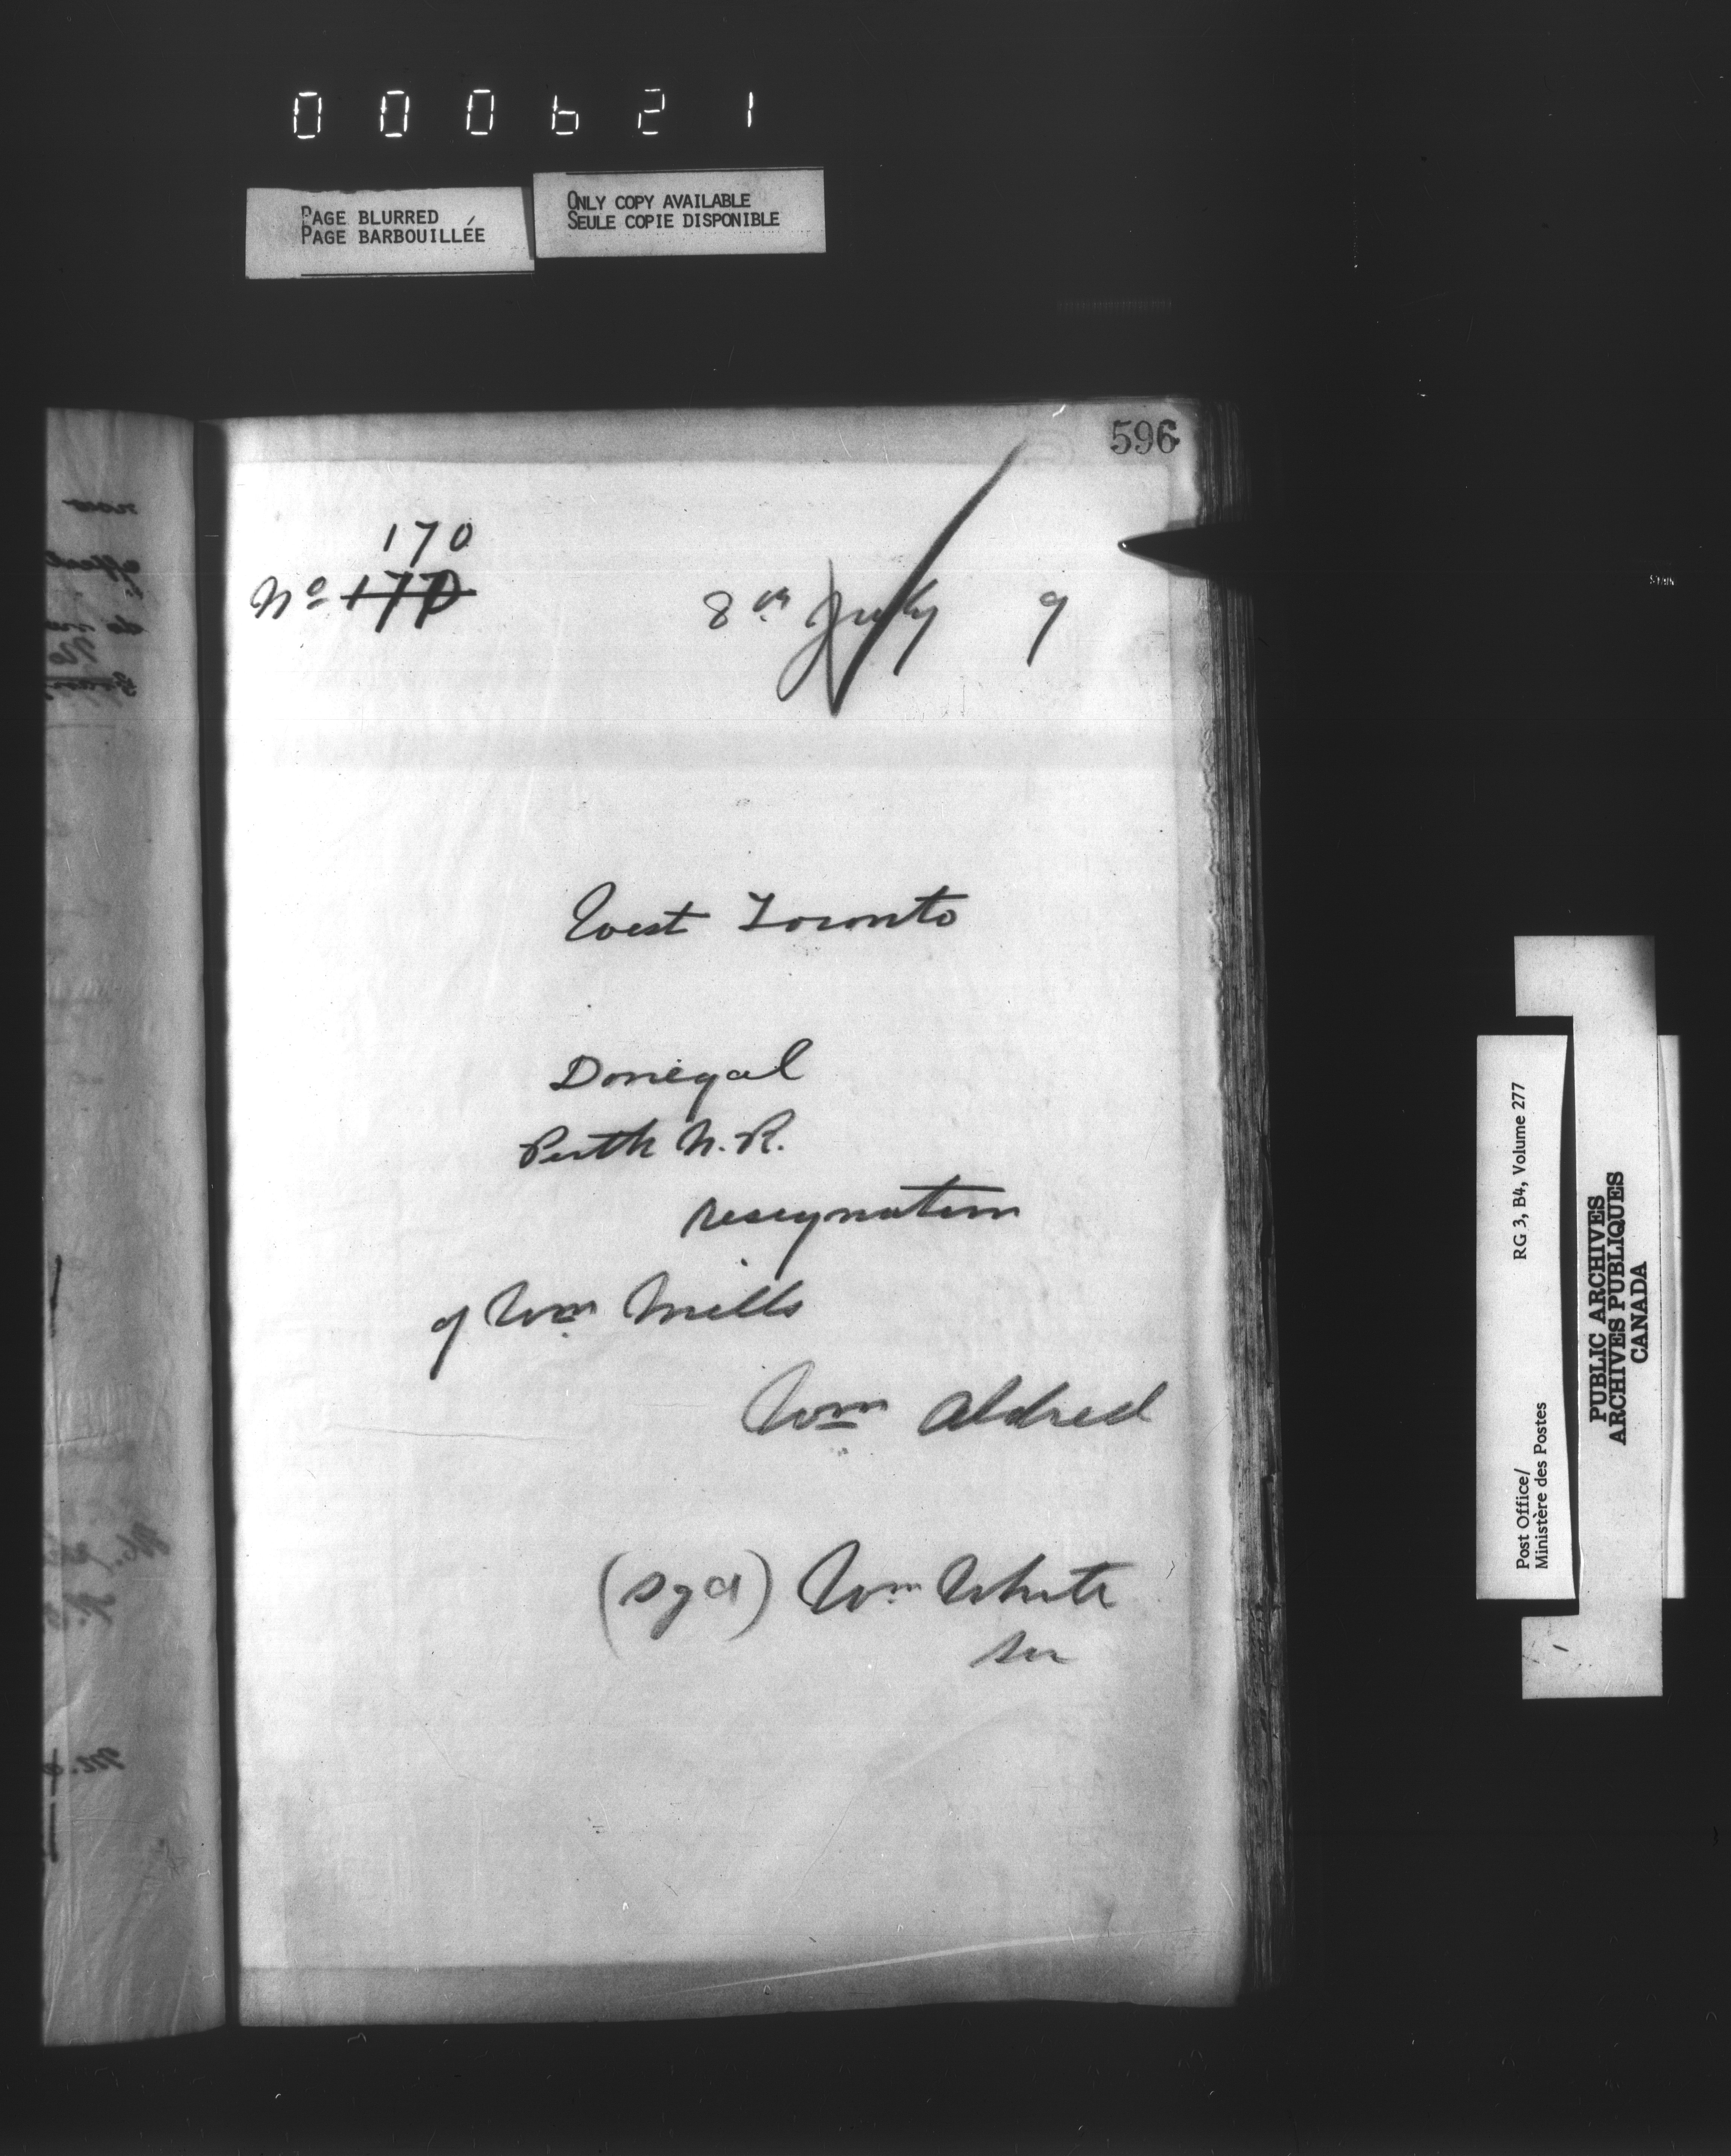 000621
PAGE BLURRED
PAGE BARBOUILLÉE
ONLY COPY AVAILABLE
SEULE COPIE DISPONIBLE
596
170
No 177D
8th July 9
West Toronto
Donegal
Perth N.R.
resignation
of Wm Mills
Wm Aldred
(sgd) Wm White
Sec
RG 3, B4, Volume 277
Post Office/
Ministère des Postes
PUBLIC ARCHIVES
ARCHIVES PUBLIQUES
CANADA